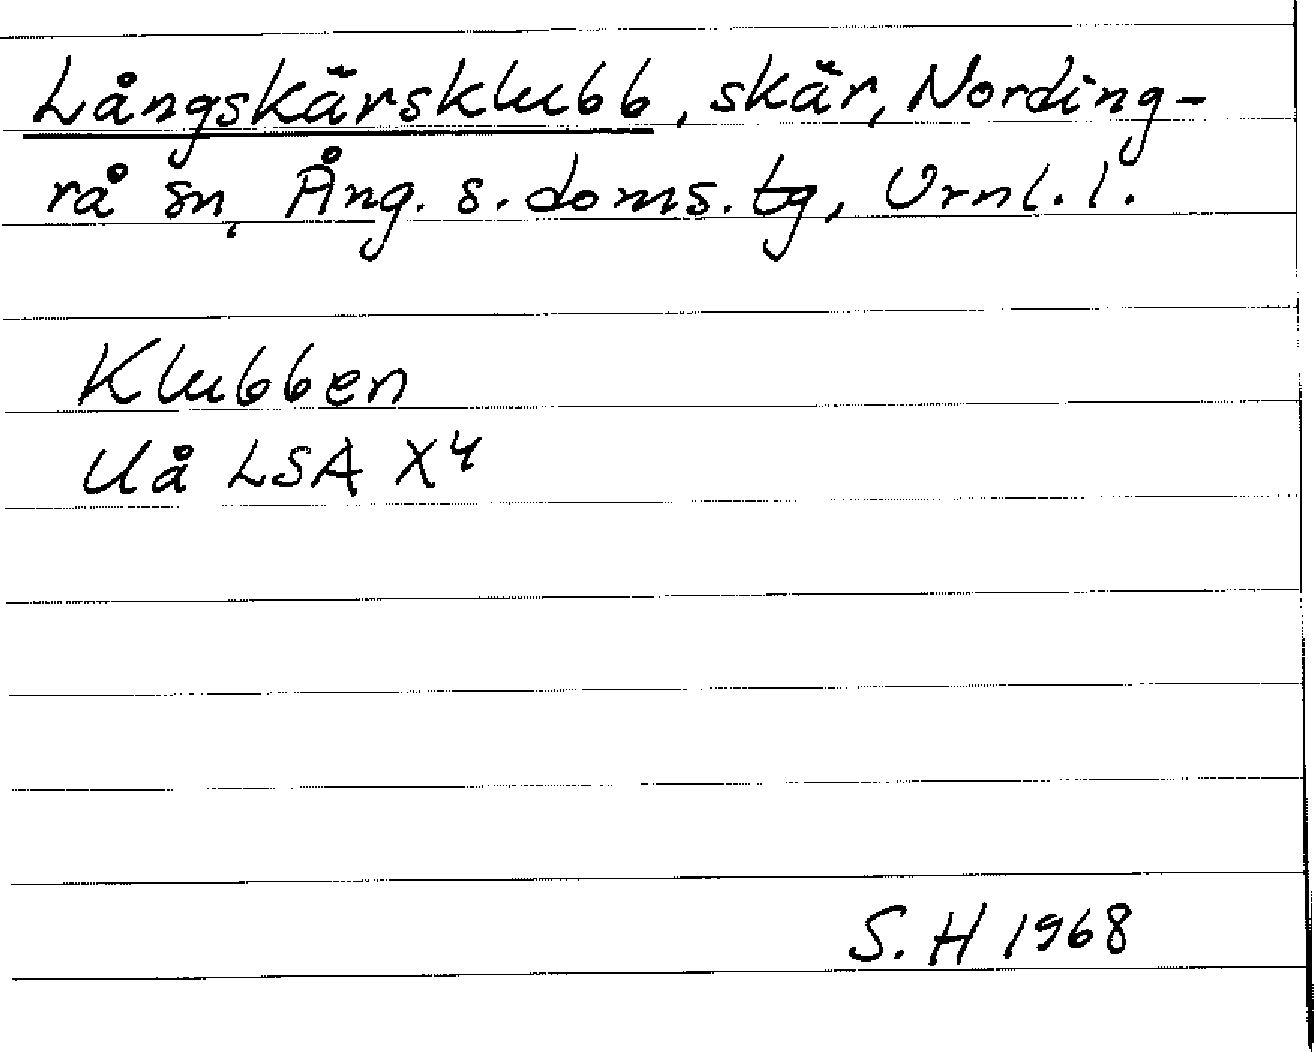 Långskärsklubb, skär, Nording-
rå sn, Ång. s. doms. tg, Urnl. l.
Klubben
Uå LSA X4
S. H 1968